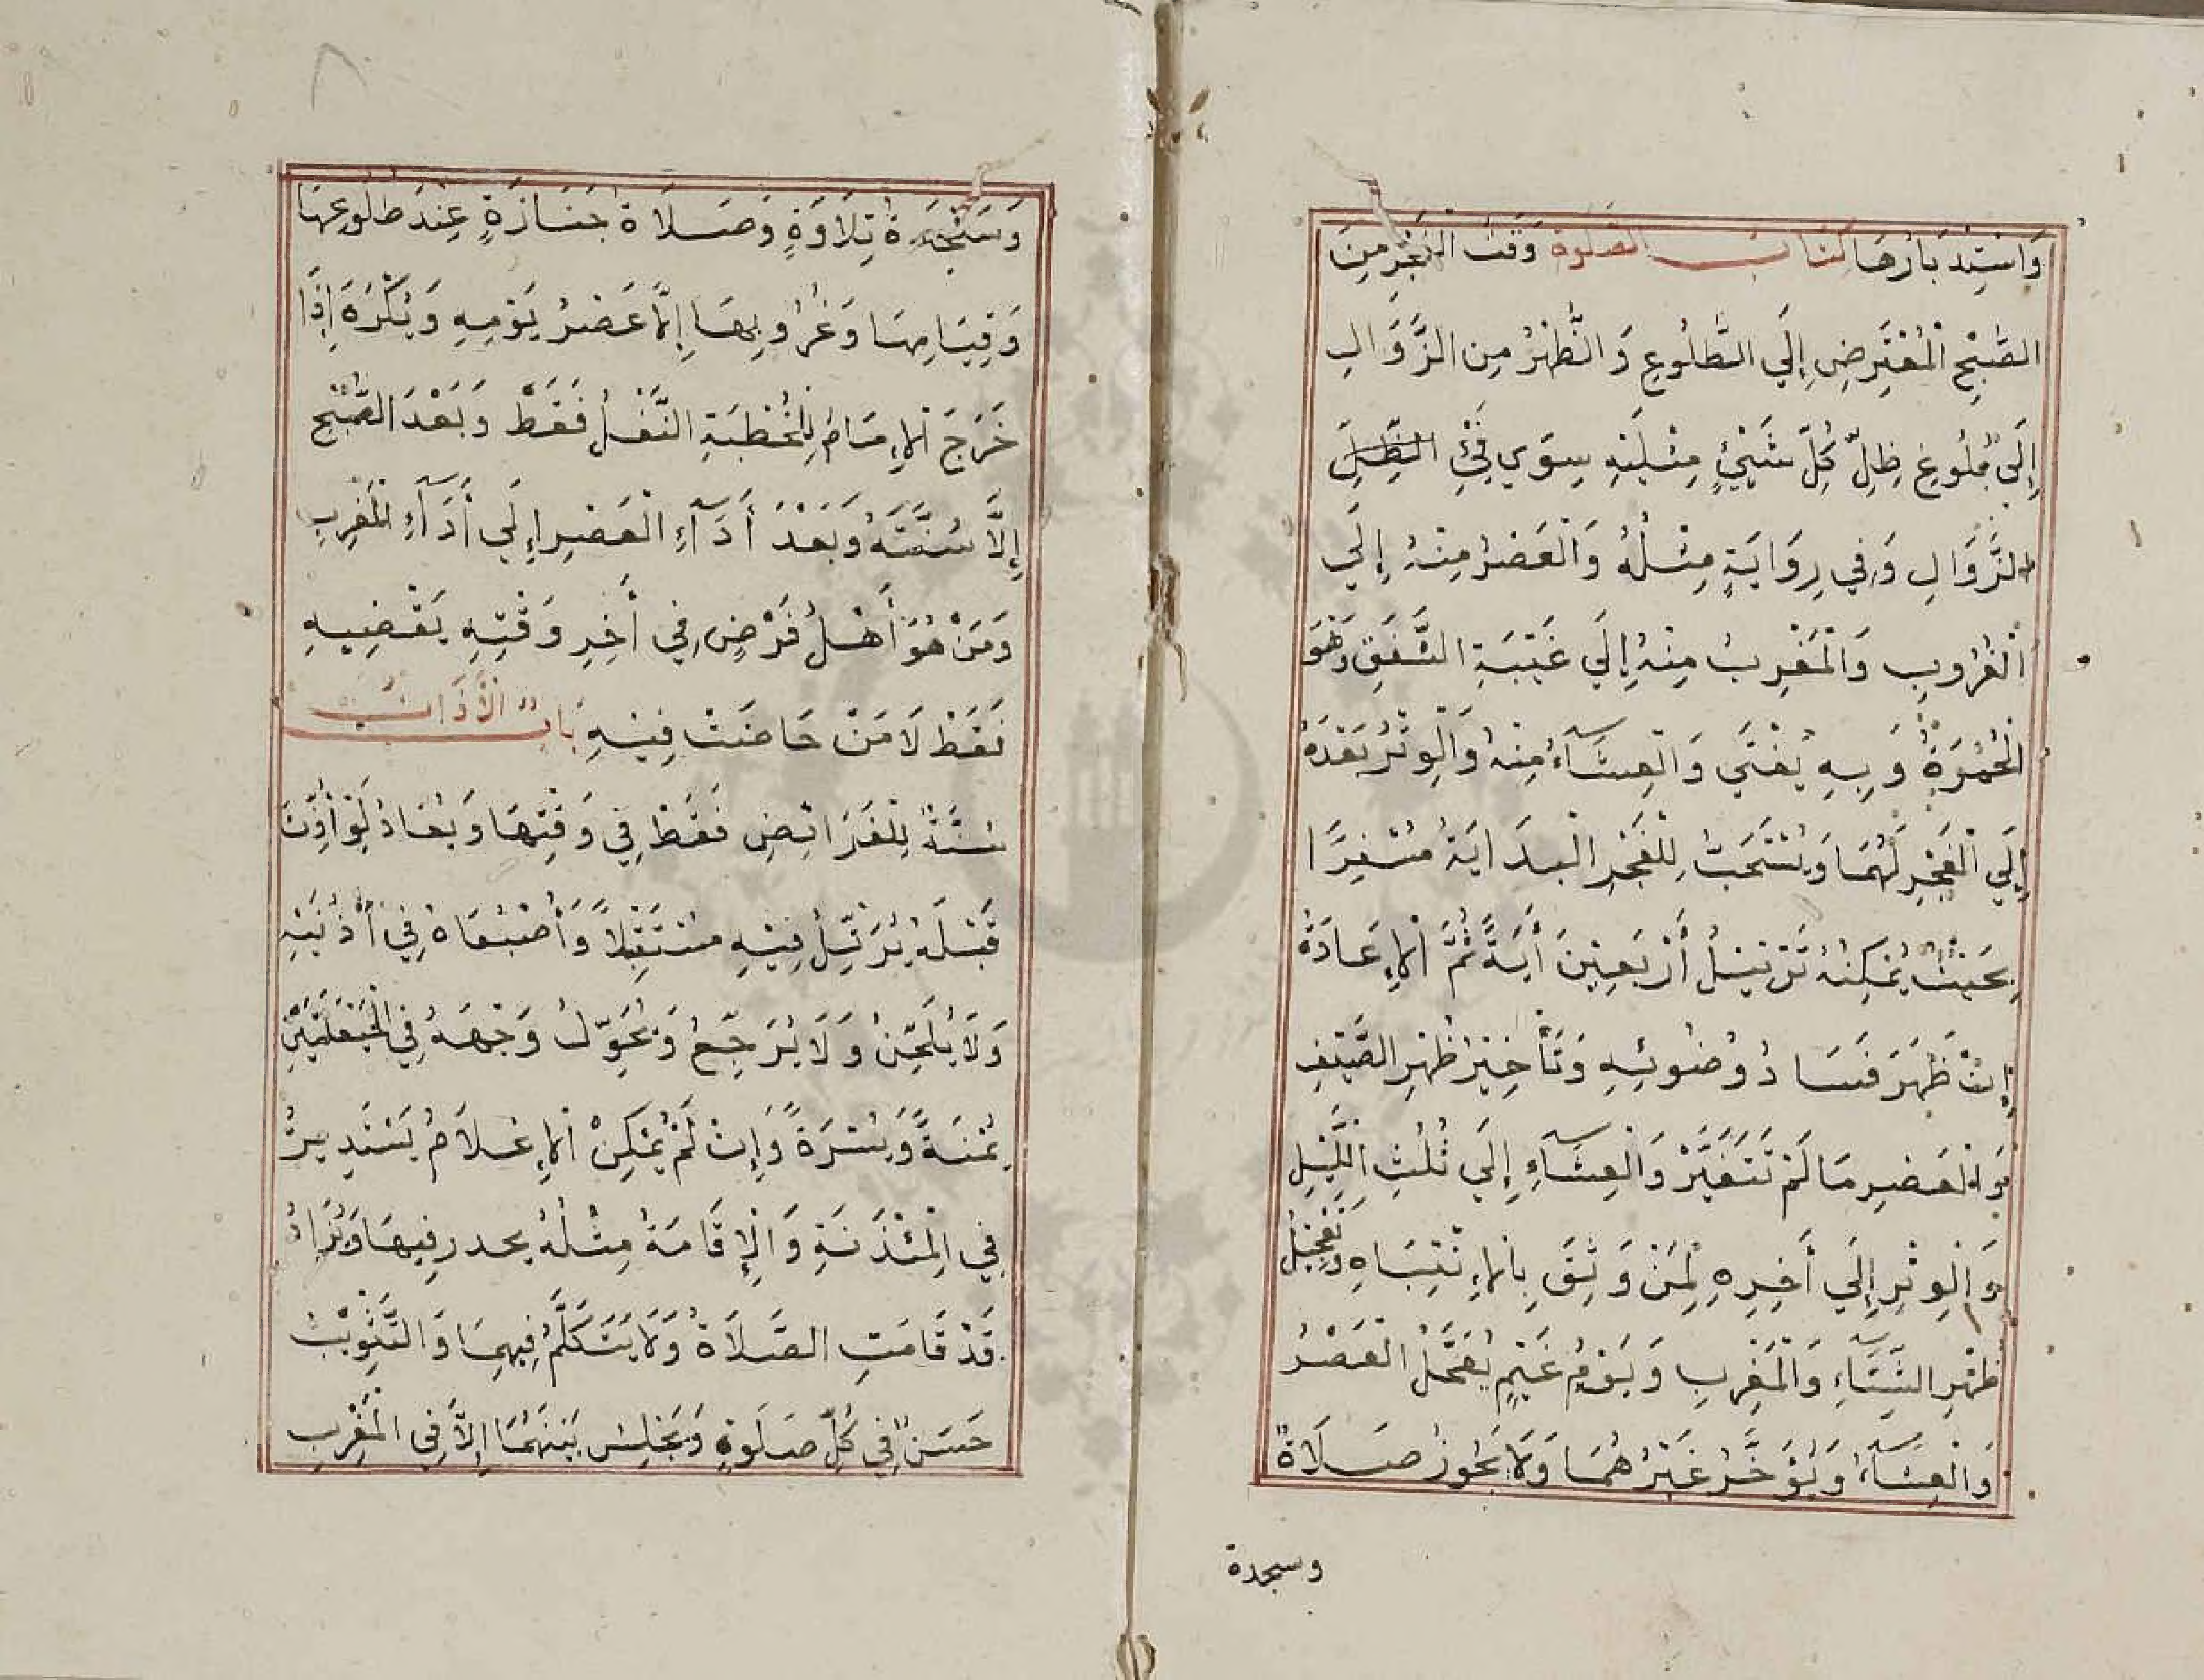 وَاسْتِدْبَارُهَا كتاب الصلوة وَقْتُ الْفَجْرِ مِنَ
الصُّبْحِ الْمُعْتَرِضِ إِلَي الطُّلُوعِ وَالظُّهْرُ مِن الزَّوَالِ
إِلَي بُلُوغِ ظِلِّ كُلِّ شَيْئٍ مِثْلَيْهِ سِوَي فَيْئِ الظِّلِّ
الزَّوَالِ وَفِي رِوَايَةٍ مِثْلُهُ وَالْعَصْرُ مِنْهُ إِلَي
الْغُرُوبِ وَالْمَغْرِبُ مِنْهُ إِلَي غَيْبَةِ الشَّفَقِ وَهُوَ
الْحُمْرَةُ وَبِهِ يُفْتَي وَالْعِشَآءُ مِنْهُ وَالْوِتْرُ بَعْدَهُ
إِلَي الْفَجْرِ لَهُمَا وَيُسْتَحَبُّ لِلْفَجْرِ الْبِدَايَةُ مُسْفِرًا
بِحَيْثُ يُمْكِنُهُ تَرْتِيْلُ أَرْبَعِيْنَ أَيَةً ثُمَّ الْإِعَادَةُ
إِنْ ظَهَرَ فَسَادُ وُضُوئِهِ وَتَأْخِيْرُ ظُهْرِ الصَّيْفِ
وَالْعَصْرِ مَا لَمْ تَتَغَيَّرْ وَالْعِشَآءِ إِلَي ثُلُثِ اللَّيْلِ
وَالْوِتْرِ إِلَي أَخِرِهِ لِمَنْ وَثِقَ بِالْإِنْتِبَاهِ وَتَعْجِيْلُ
ظُهْرِ الشِّتَآءِ وَالْمَغْرِبِ وَيَوْمُ غَيْمٍ يُعَجَّلُ الْعَصْرُ
وَالْعِشَآءُ وَيُؤَخَّرُ غَيْرُهُمَا وَلَا يَجُوزُ صَلَاةٌ
وسجدة
٨
وَسَجْدَةُ تِلَاوَةٍ وَصَلَاةُ جَنَازَةٍ عِنْدَ طُلُوعِهَا
وَقِيَامِهَا وَغُرُوبِهَا إِلَّا عَصْرَ يَوْمِهِ وَيُكْرَهُ إِذَا
خَرَجَ الْإِمَامُ لِلْخُطْبَةِ النَّفْلُ فَقَطْ وَبَعْدَ الصُّبْحِ
إِلَّا سُنَّتَهُ وَبَعْدَ أَدَآءِ الْعَصْرِ إِلَي أَدَآءِ الْمَغْرِبِ
وَمَنْ هُوَ أَهْلُ فَرْضٍ فِي أَخِرِ وَقْتِهِ يَقْضِيهِ
فَقَطْ لَا مَنْ حَاضَتْ فِيْهِ بَابُ الْأَذَانِ
سُنَّةٌ لِلْفَرَائِضِ فَقَطْ فِي وَقْتِهَا وَيُعَادُ لَوْ أُذِّنَ
قَبْلَهُ يُرَتِّلُ فِيْهِ مُسْتَقْبِلًا وَأَصْبُعَاهُ فِي أُذُنَيْهِ
وَلَا يُلَحِّنُ وَلَا يُرَجِّعُ وَيُحَوِّلُ وَجْهَهُ فِي الْحَيْعَلَتَيْنِ
يُمْنَةً وَيُسْرَةً وَإِنْ لَمْ يُمْكِنْ الْإِعْلَامُ يَسْتَدِيرُ
فِي الْمِئْذَنَةِ وَالْإِقَامَةُ مِثْلُهُ يحدر فِيهَا وَيُزَادُ
قَدْ قَامَتِ الصَّلَاةُ وَلَا يَتَكَلَّمُ فِيهِمَا وَالتَّثْوِيْبُ
حَسَنٌ فِي كُلِّ صَلَوةٍ وَيَجْلِسُ بَيْنَهُمَا إِلَّا فِي الْمَغْرِبِ